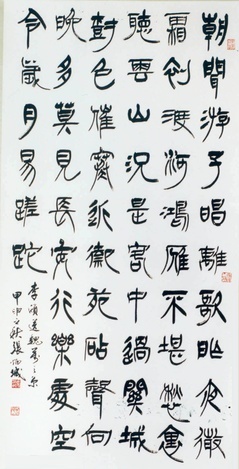 朝聞游子唱離歌昨夜微
霜初渡河鴻雁不堪愁裏
聽雲山況是客中過關城
樹色催寒近御苑砧聲向
晚多莫見長安行樂處空
令歲月易蹉跎
李頎送魏萬之京
甲申之秋張